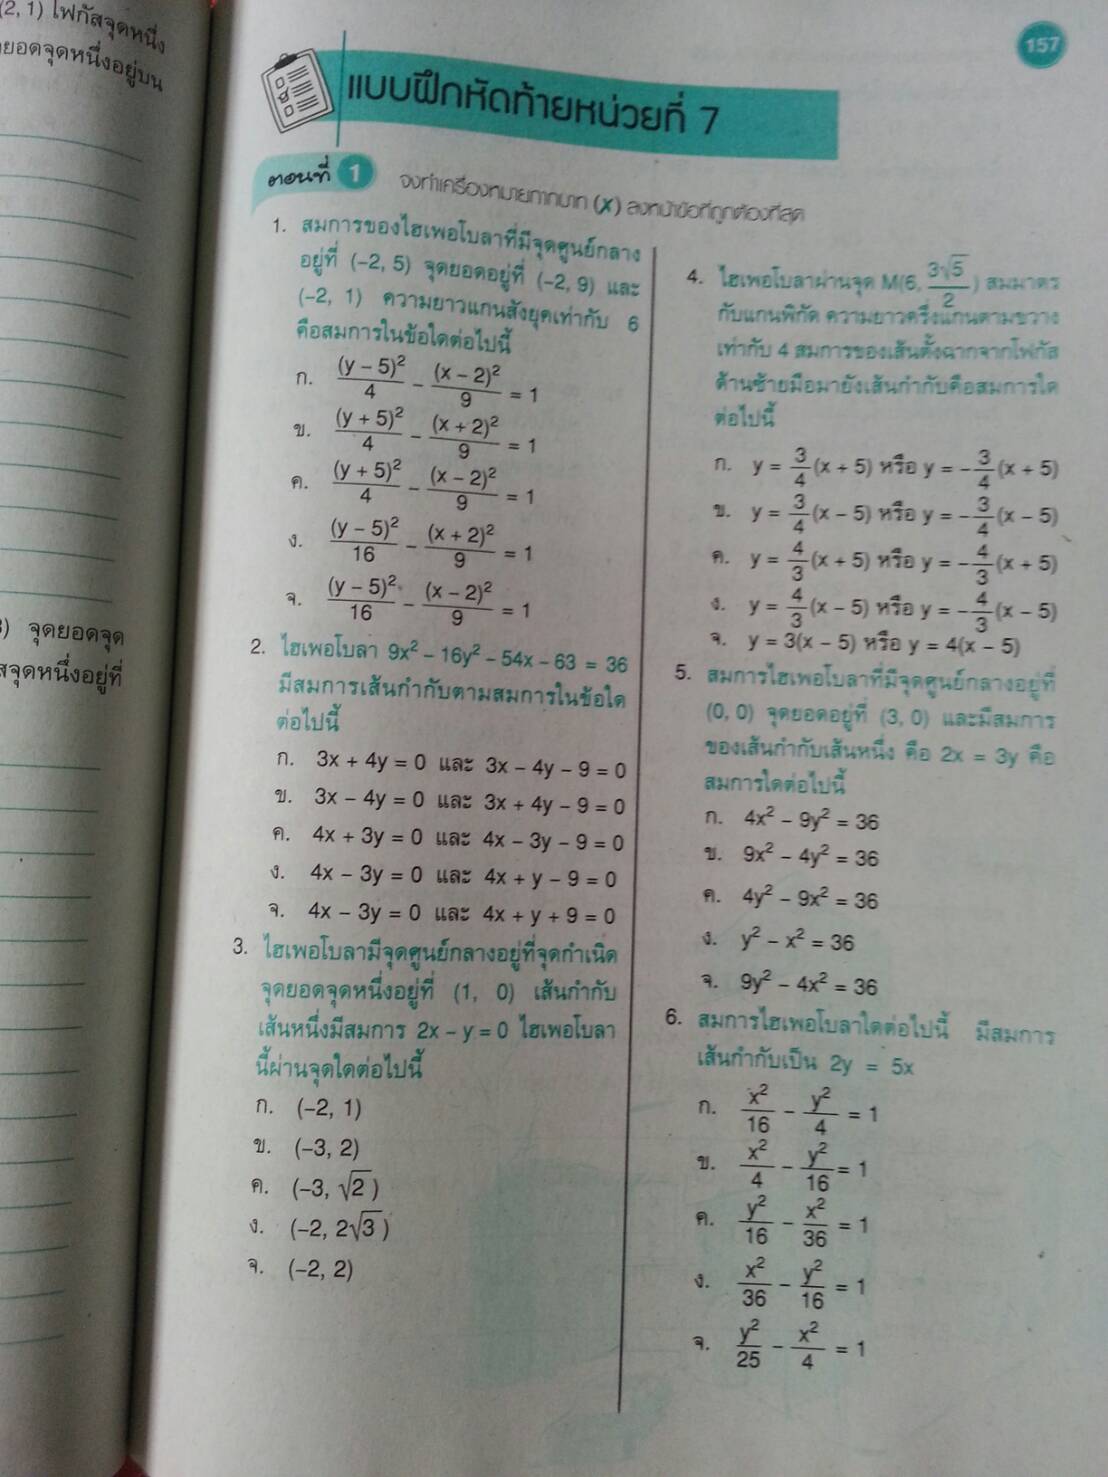 (2, 1) โฟกัสจุดหนึ่ง
ยอดจุดหนึ่งอยู่บน
3) จุดยอดจุด
สจุดหนึ่งอยู่ที่
157
แบบฝึกหัดท้ายหน่วยที่ 7
ตอนที่ 1 จงทำเครื่องหมายกากบาท (X) ลงหน้าข้อที่ถูกต้องที่สุด
1. สมการของไฮเพอโบลาที่มีจุดศูนย์กลาง
อยู่ที่ (–2, 5) จุดยอดอยู่ที่ (–2, 9) และ
(–2, 1) ความยาวแกนสังยุคเท่ากับ 6
คือสมการในข้อใดต่อไปนี้
ก. (y – 5)²/4 – (x – 2)²/9 = 1
ข. (y + 5)²/4 – (x + 2)²/9 = 1
ค. (y + 5)²/4 – (x – 2)²/9 = 1
ง. (y – 5)²/16 – (x + 2)²/9 = 1
จ. (y – 5)²/16 – (x – 2)²/9 = 1
2. ไฮเพอโบลา 9x² – 16y² – 54x – 63 = 36
มีสมการเส้นกำกับตามสมการในข้อใด
ต่อไปนี้
ก. 3x + 4y = 0 และ 3x – 4y – 9 = 0
ข. 3x – 4y = 0 และ 3x + 4y – 9 = 0
ค. 4x + 3y = 0 และ 4x – 3y – 9 = 0
ง. 4x – 3y = 0 และ 4x + y – 9 = 0
จ. 4x – 3y = 0 และ 4x + y + 9 = 0
3. ไฮเพอโบลามีจุดศูนย์กลางอยู่ที่จุดกำเนิด
จุดยอดจุดหนึ่งอยู่ที่ (1, 0) เส้นกำกับ
เส้นหนึ่งมีสมการ 2x – y = 0 ไฮเพอโบลา
นี้ผ่านจุดใดต่อไปนี้
ก. (–2, 1)
ข. (–3, 2)
ค. (–3, √2)
ง. (–2, 2√3)
จ. (–2, 2)
4. ไฮเพอโบลาผ่านจุด M(6, 3√5/2) สมมาตร
กับแกนพิกัด ความยาวครึ่งแกนตามขวาง
เท่ากับ 4 สมการของเส้นตั้งฉากจากโฟกัส
ด้านซ้ายมือมายังเส้นกำกับคือสมการใด
ต่อไปนี้
ก. y = 3/4(x + 5) หรือ y = –3/4(x + 5)
ข. y = 3/4(x – 5) หรือ y = –3/4(x – 5)
ค. y = 4/3(x + 5) หรือ y = –4/3(x + 5)
ง. y = 4/3(x – 5) หรือ y = –4/3(x – 5)
จ. y = 3(x – 5) หรือ y = 4(x – 5)
5. สมการไฮเพอโบลาที่มีจุดศูนย์กลางอยู่ที่
(0, 0) จุดยอดอยู่ที่ (3, 0) และมีสมการ
ของเส้นกำกับเส้นหนึ่ง คือ 2x = 3y คือ
สมการใดต่อไปนี้
ก. 4x² – 9y² = 36
ข. 9x² – 4y² = 36
ค. 4y² – 9x² = 36
ง. y² – x² = 36
จ. 9y² – 4x² = 36
6. สมการไฮเพอโบลาใดต่อไปนี้ มีสมการ
เส้นกำกับเป็น 2y = 5x
ก. x²/16 – y²/4 = 1
ข. x²/4 – y²/16 = 1
ค. y²/16 – x²/36 = 1
ง. x²/36 – y²/16 = 1
จ. y²/25 – x²/4 = 1